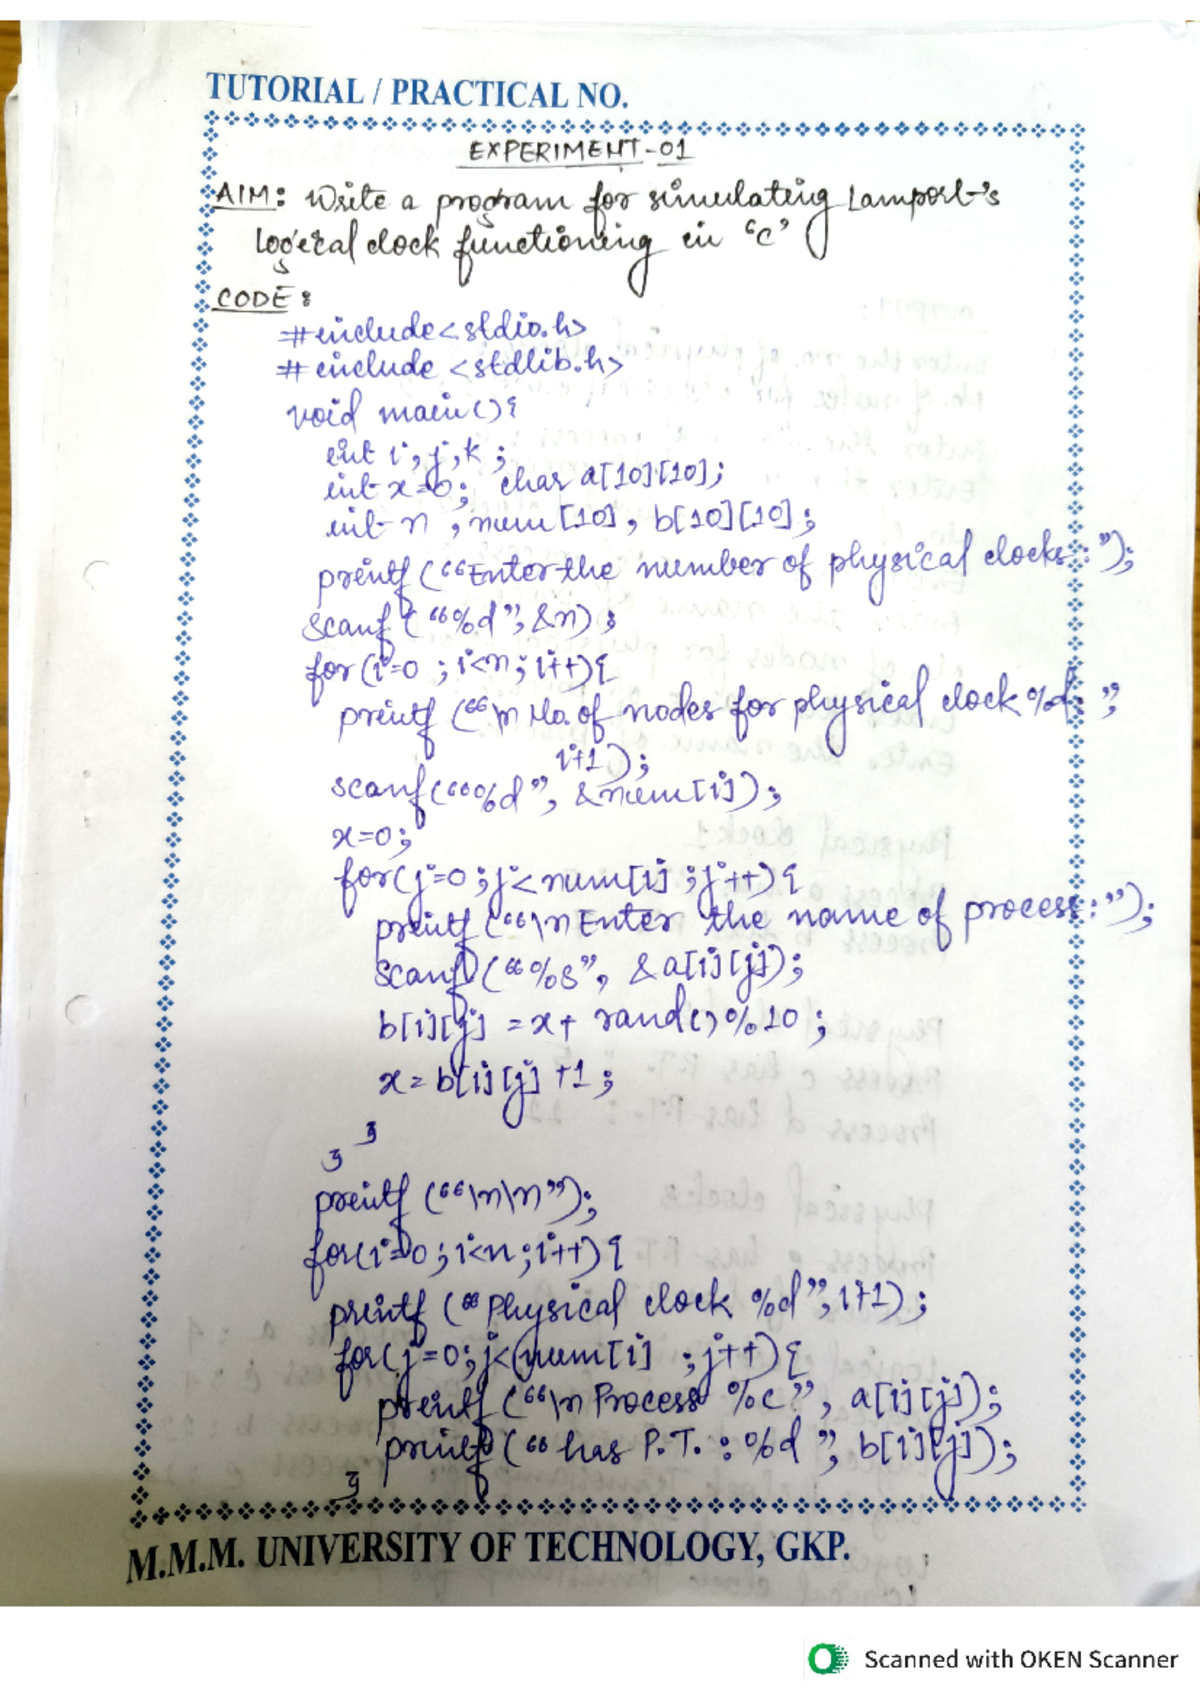 TUTORIAL / PRACTICAL NO.
EXPERIMENT-01
AIM: Write a program for simulating Lamport's
logical clock functioning in "C"
CODE:
#include<stdio.h>
#include <stdlib.h>
void main(){
int i,j,k;
int x=0; char a[10][10];
int n, num[10], b[10][10];
printf("Enter the number of physical clocks:");
scanf("%d", &n);
for(i=0; i<n; i++){
printf("\n No. of nodes for physical clock %d:",
i+1);
scanf("%d", &num[i]);
x=0;
for(j=0; j<num[i]; j++){
printf("\n Enter the name of process:");
scanf("%s", &a[i][j]);
b[i][j] = x+ rand()%10;
x= b[i][j] +1;
}
}
printf("\n\n");
for(i=0; i<n; i++){
printf("Physical clock %d", i+1);
for(j=0; j<num[i]; j++){
printf("\n Process %c", a[i][j]);
printf(" has P.T. : %d ", b[i][j]);
}
M.M.M. UNIVERSITY OF TECHNOLOGY, GKP.
Scanned with OKEN Scanner